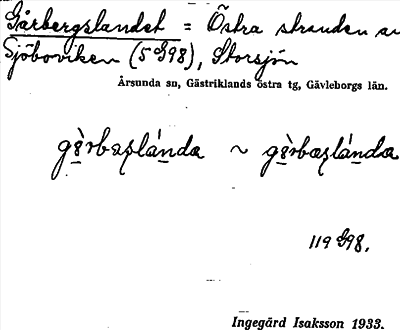 Gårbergslandet = Östra stranden av
Sjöboviken (5 G98), Storsjön
Årsunda sn, Gästriklands östra tg, Gävleborgs län.
~
119 G98.
Ingegärd Isaksson 1933.